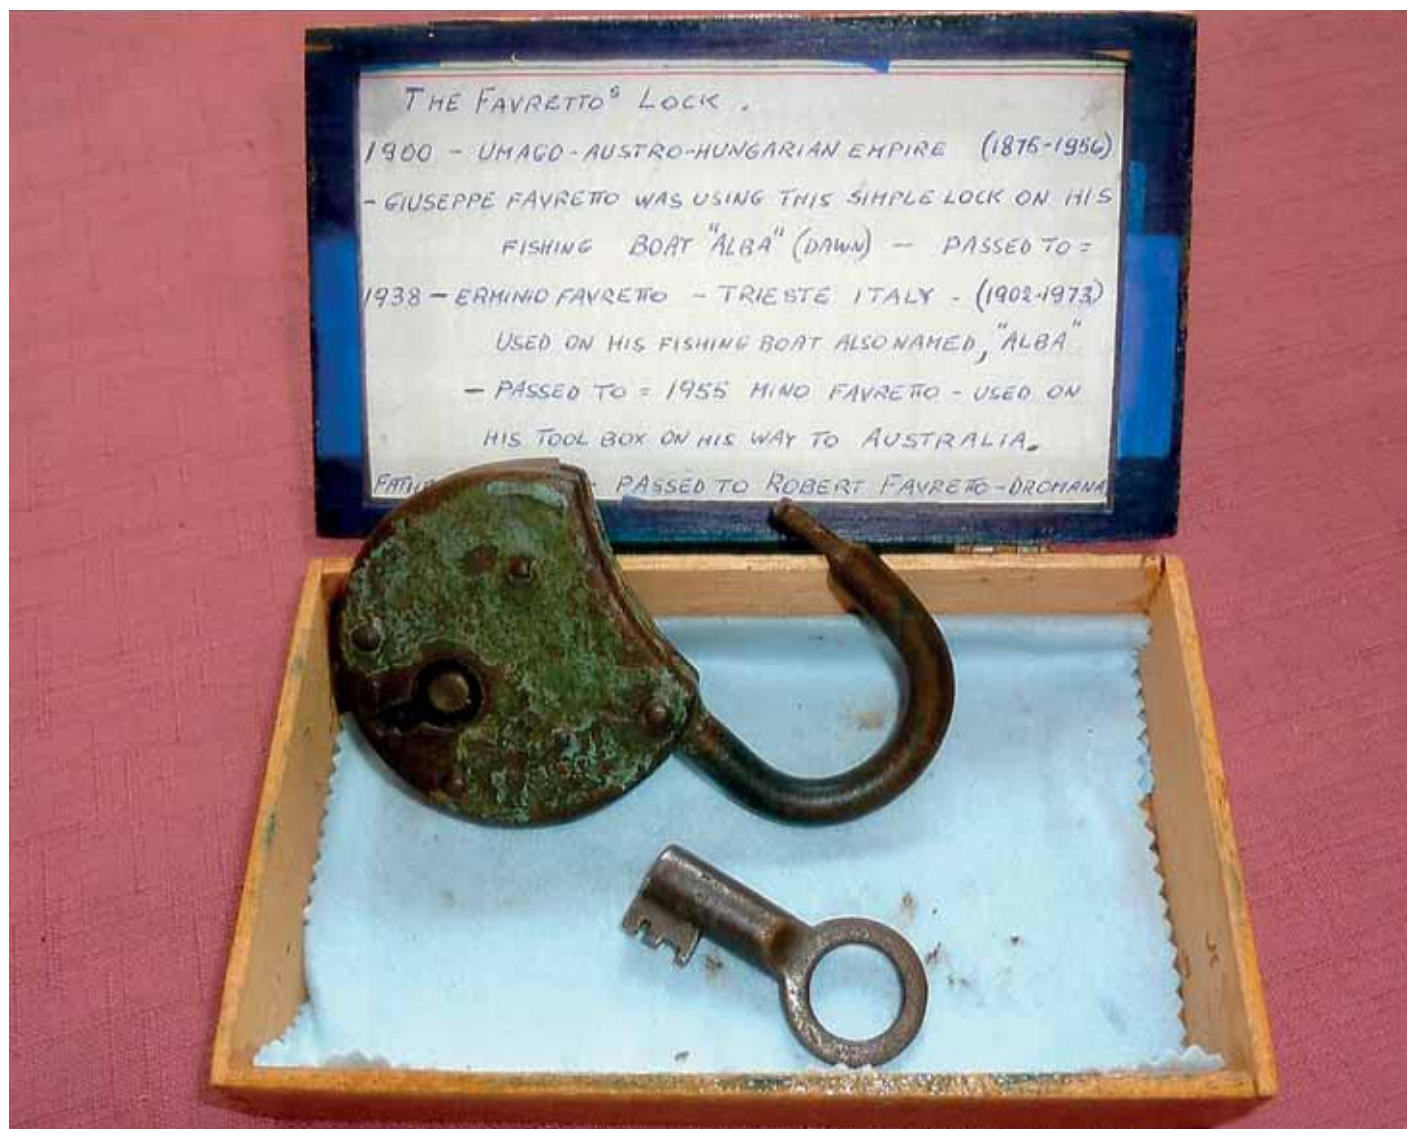 THE FAVRETTO'S LOCK.
1900 - UMAGO - AUSTRO-HUNGARIAN EMPIRE (1876-1956)
- GIUSEPPE FAVRETTO WAS USING THIS SIMPLE LOCK ON HIS
FISHING BOAT "ALBA" (DAWN) - PASSED TO =
1938 - ERMINIO FAVRETTO - TRIESTE ITALY - (1902-1973)
USED ON HIS FISHING BOAT ALSO NAMED, "ALBA"
- PASSED TO = 1955 MINO FAVRETTO - USED ON
HIS TOOL BOX ON HIS WAY TO AUSTRALIA.
- PASSED TO ROBERT FAVRETTO - DROMANA